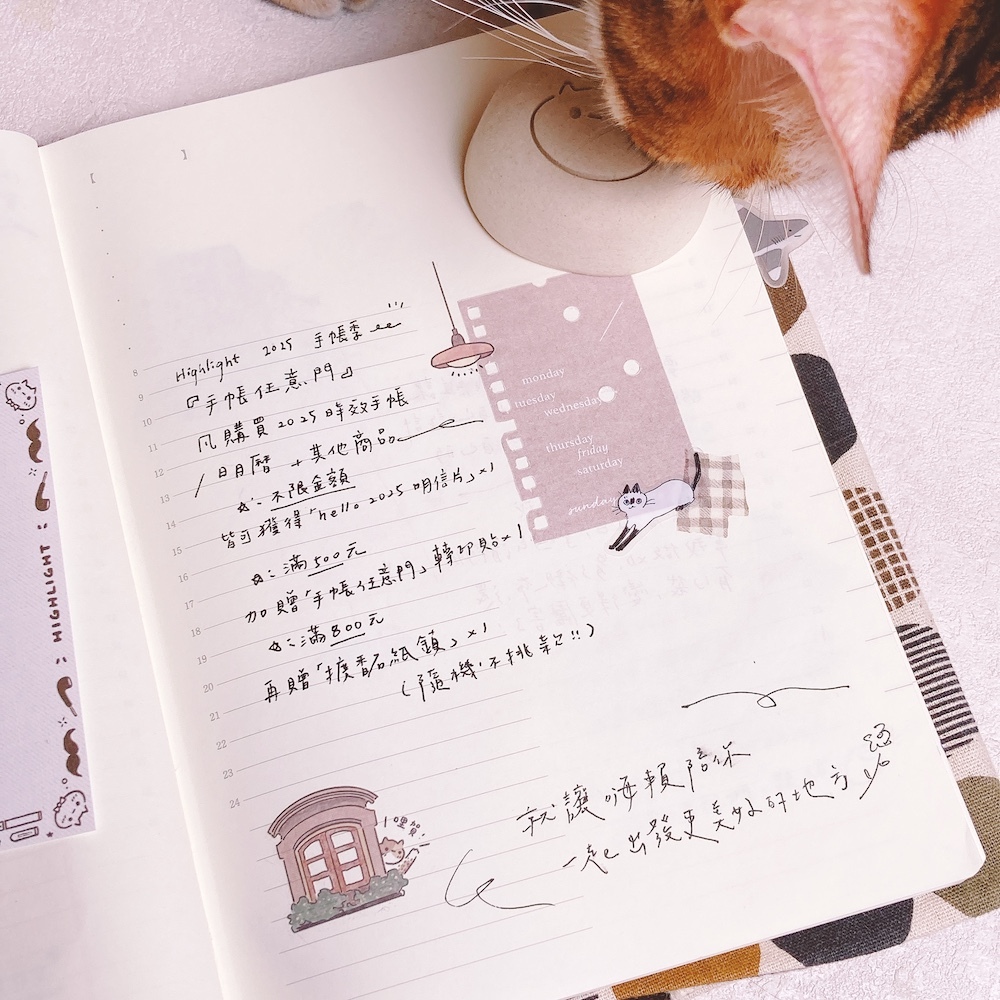 Highlight 2025 手帳季
『手帳任意門』
凡購買2025時效手帳
/日月曆 + 其他商品
☆:不限金額
皆可獲得「hello 2025 明信片」x1
☆:滿500元
加贈「手帳任意門」轉印貼x1
☆:滿800元
再贈「擴香石紙鎮」x1
(隨機,不挑款!!)
就讓嗨賴陪你
一起出發更美好的地方
8
9
10
11
12
13
14
15
16
17
18
19
20
21
22
23
24
monday
tuesday
wednesday
thursday
friday
saturday
sunday
哩賀!
HIGHLIGHT